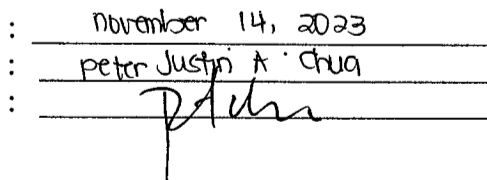 : november 14, 2023
: peter Justin A. Chua
: